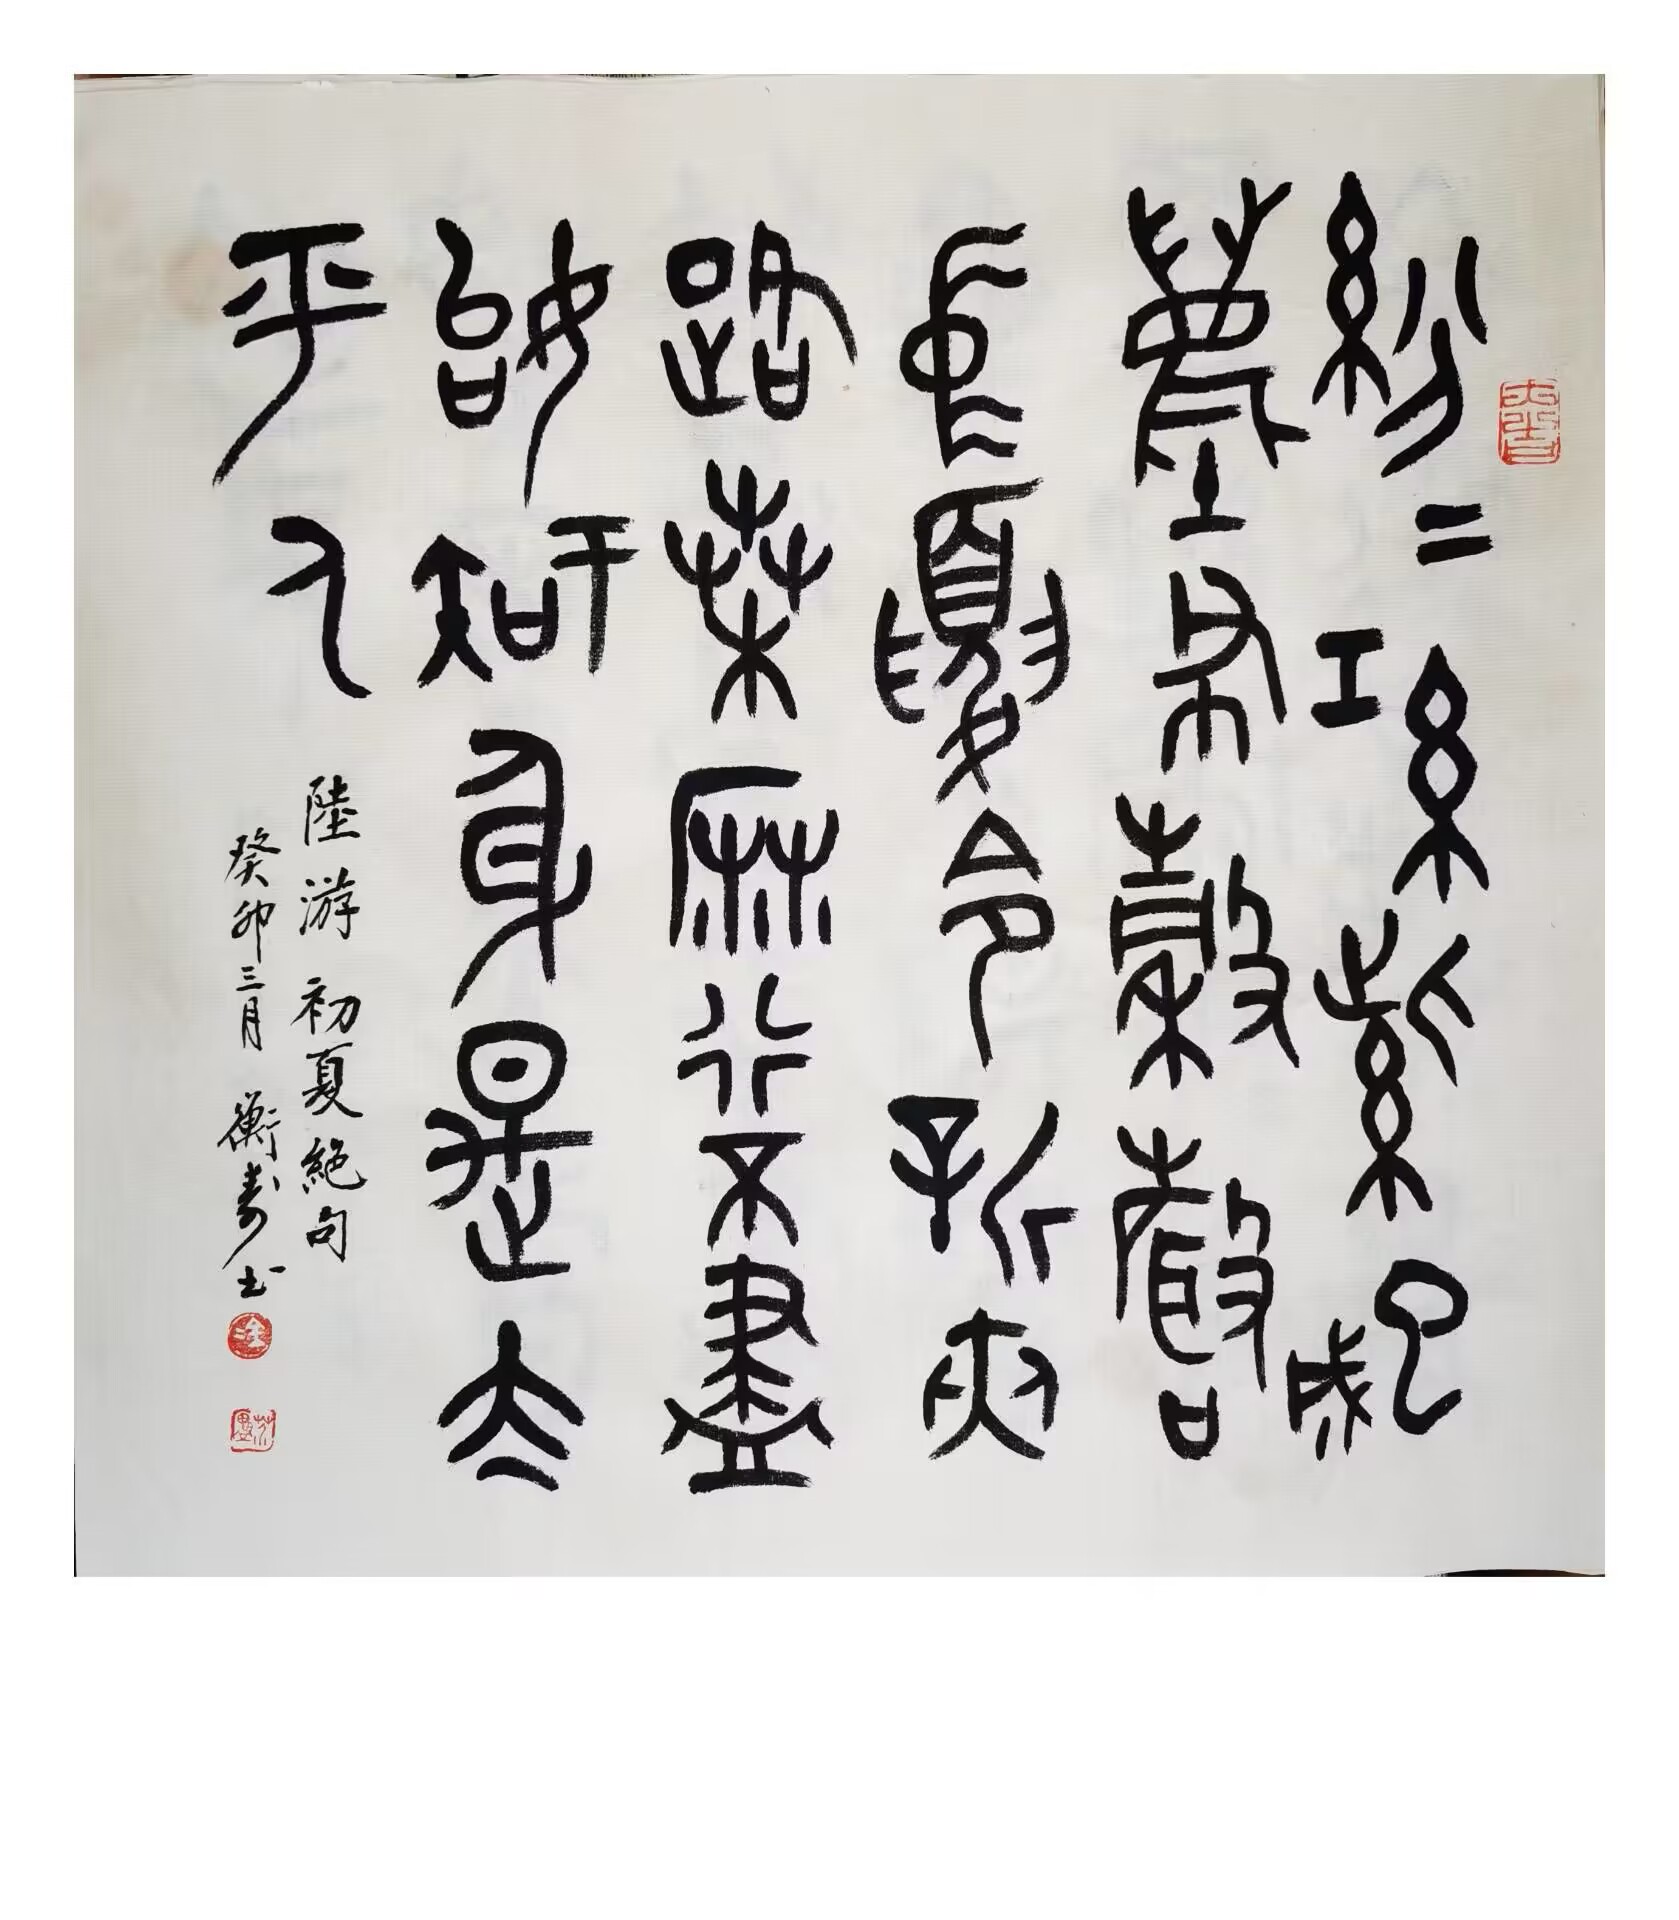 紛〻紅紫已成
塵布穀聲
中夏令新夾
路桑麻行不盡
始知身是太
平人
陸游初夏絕句
癸卯三月 衡壽书